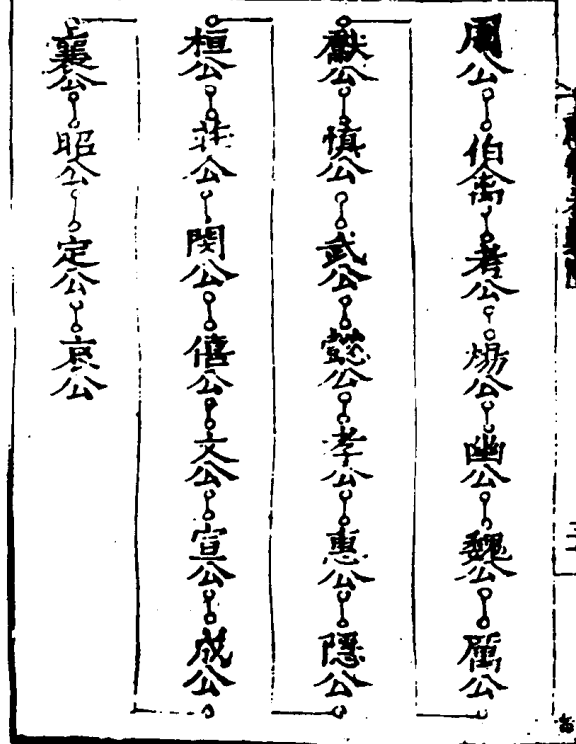 周公 伯禽 考公 煬公 幽公 魏公 厲公
獻公 慎公 武公 懿公 孝公 惠公 隱公
桓公 莊公 閔公 僖公 文公 宣公 成公
襄公 昭公 定公 哀公